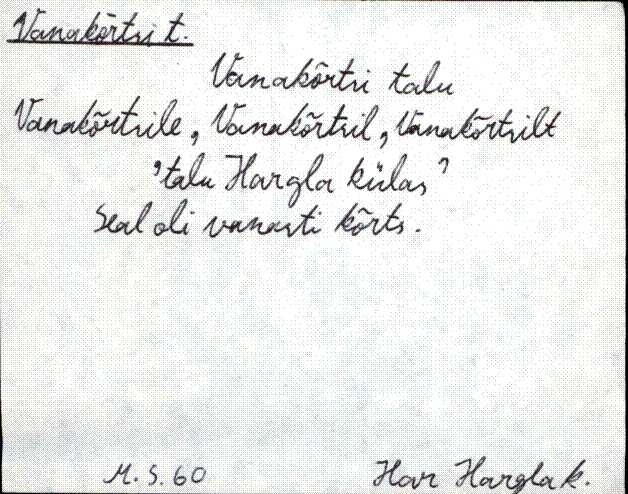 Vanakõrtsi t.
Vanakõrtsi talu
Vanakõrtsile, Vanakõrtsil, Vanakõrtsilt
'talu Hargla külas'
Seal oli vanasti kõrts.
M. S. 60 Har Hargla k.